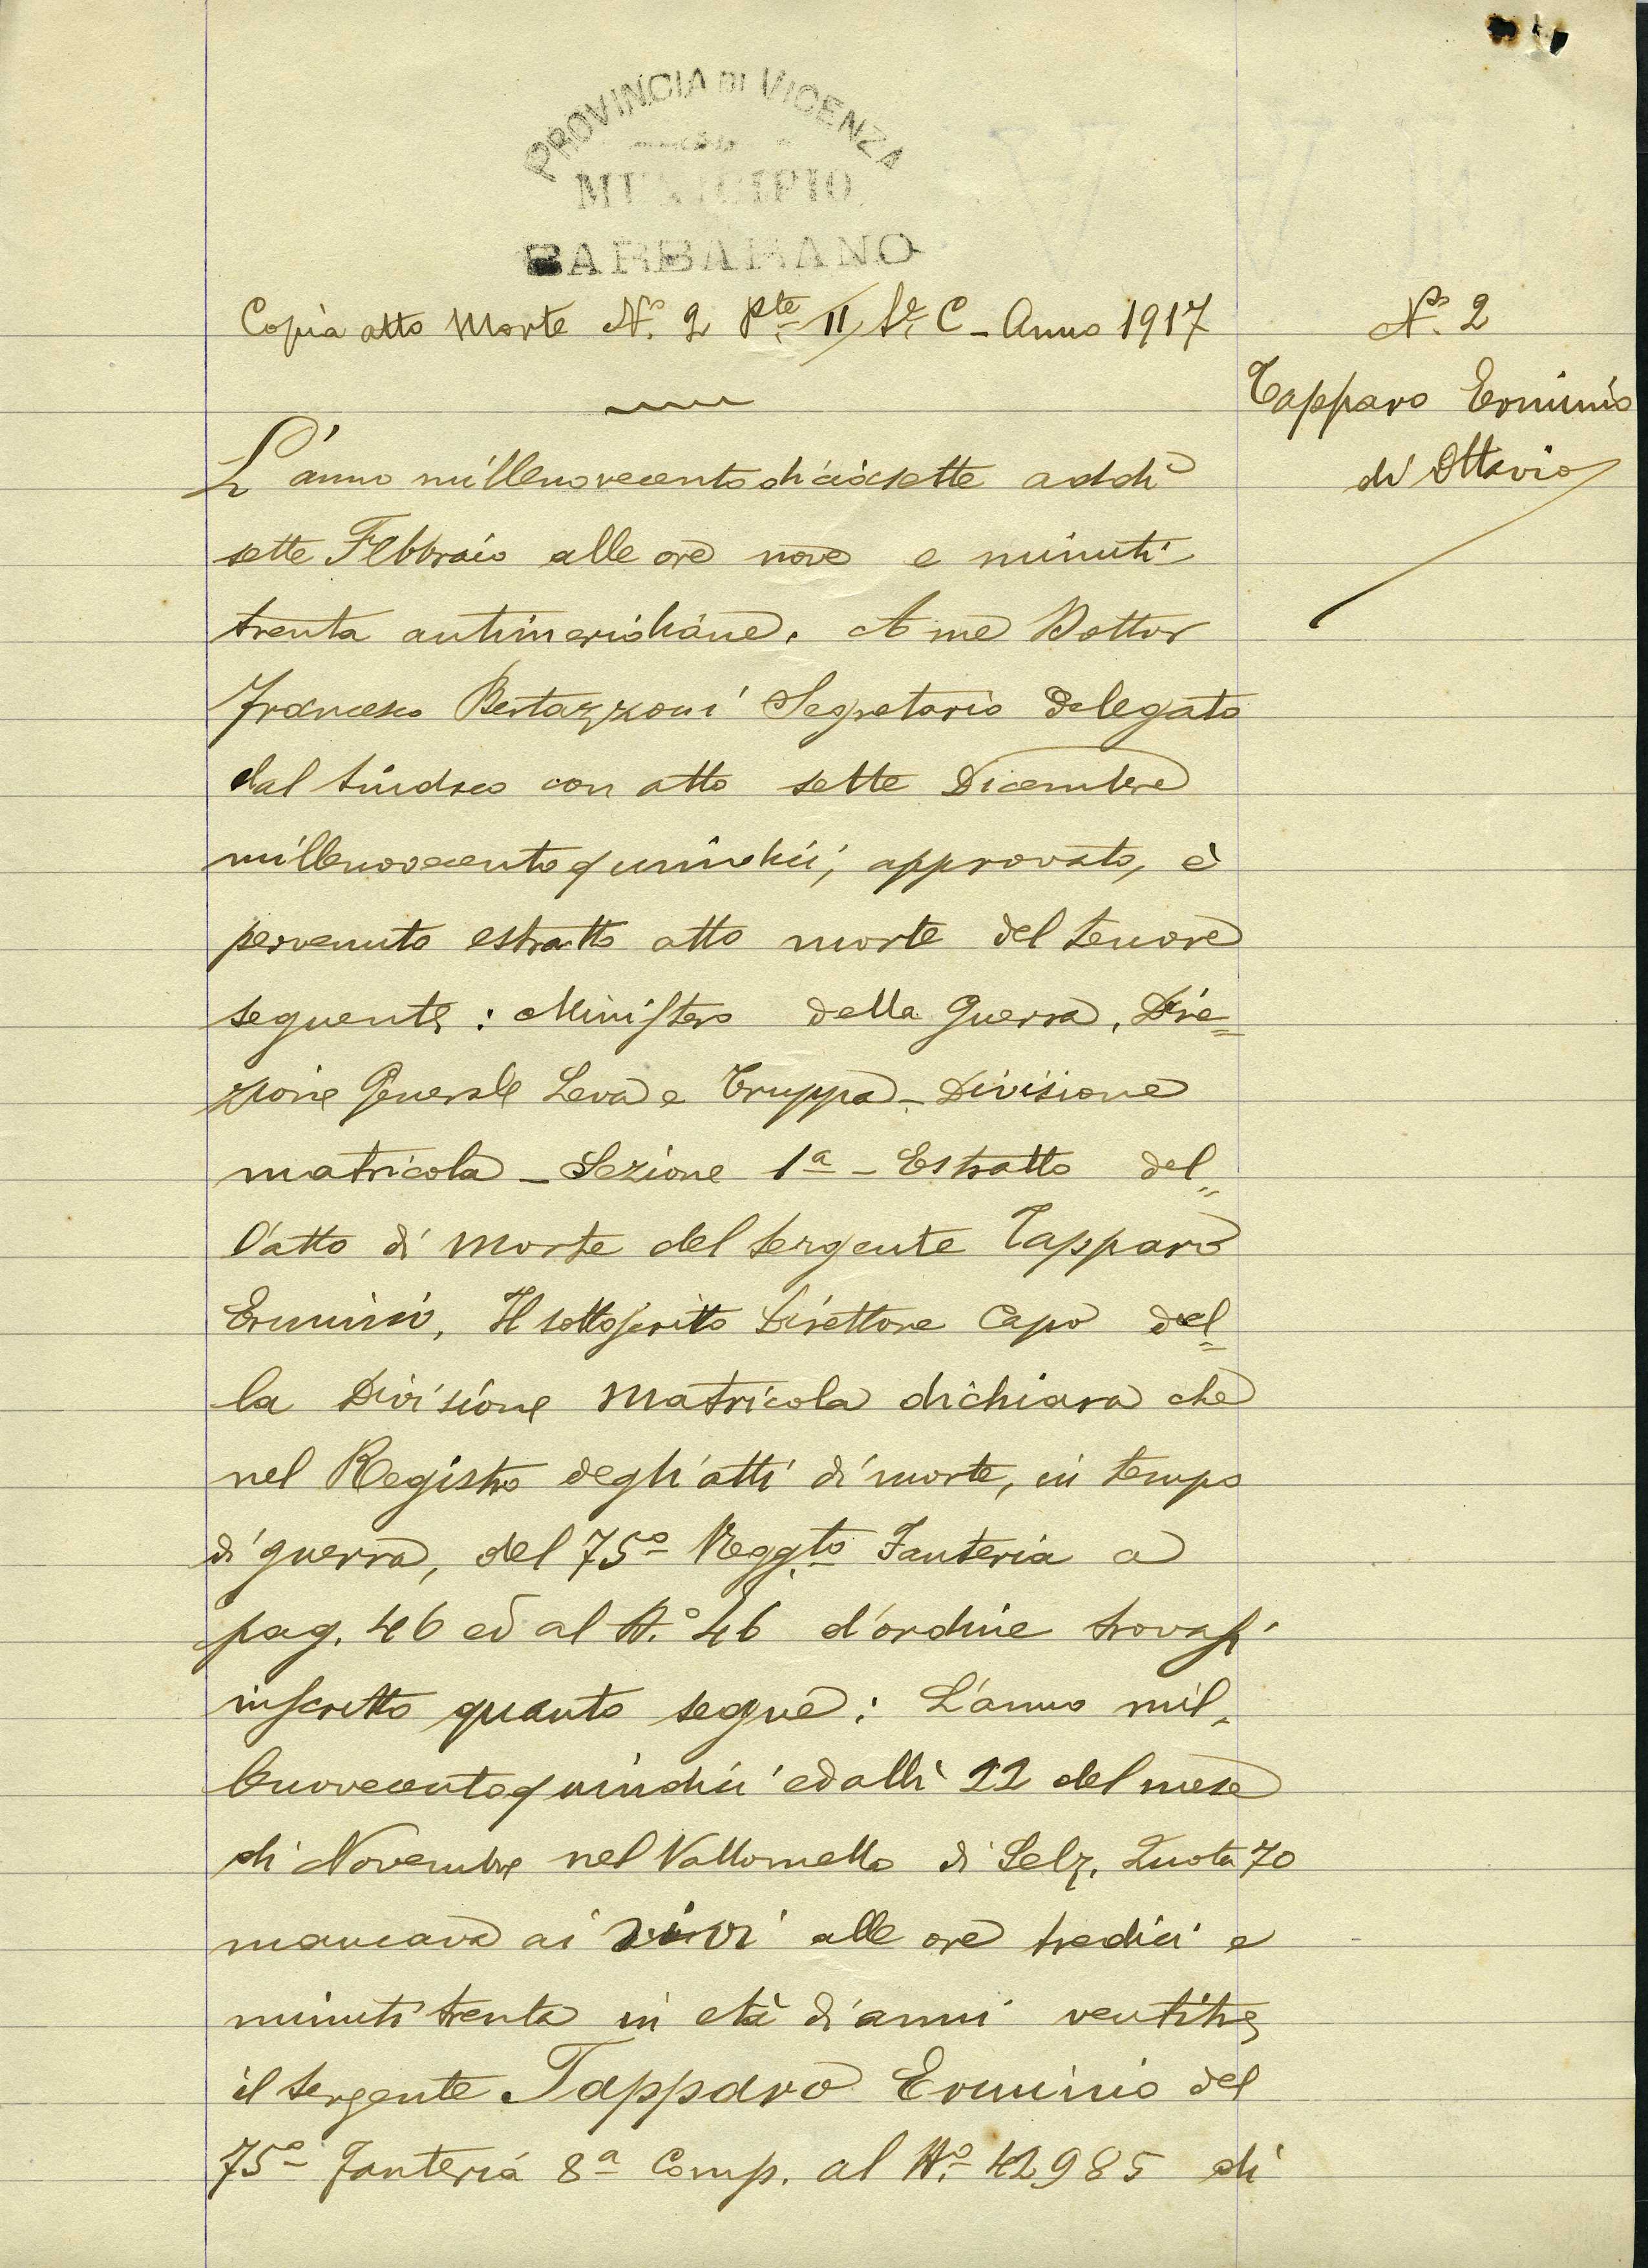 PROVINCIA DI VICENZA
MUNICIPIO
BARBARANO
Copia atto Morte N.º 2 Pte II Se. C - Anno 1917
N.º 2
Tapparo Erminio
di Ottavio
L'anno millenovecentodiciasette addì
sette Febbraio alle ore nove e minuti
trenta antimeridiane. A me Dottor
Francesco Bertazzoni Segretario Delegato
dal Sindaco con atto sette Dicembre
millenovecentoquindici, approvato, è
pervenuto estratto atto morte del tenore
seguente: Ministero della Guerra. Dire=
zione Generale Leva e Truppa - Divisione
matricola - Sezione 1ª - Estratto del=
l'atto di Morte del Sergente Tapparo
Erminio. Il sottoscritto Direttore Capo del=
la Divisione Matricola dichiara che
nel Registro degli atti di morte, in tempo
di guerra, del 75º Reggto Fanteria a
pag. 46 ed al N.º 46 d'ordine trovasi
inscritto quanto segue: L'anno mil-
lenovecentoquindici ed alli 22 del mese
di Novembre nel Valloncello di Selz. Quota 70
mancava ai vivi alle ore tredici e
minuti trenta in età di anni ventitre
il Sergente Tapparo Erminio del
75º Fanteria 8ª Comp. al Nº 42985 di